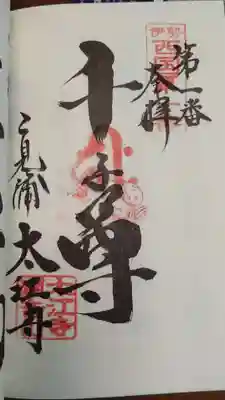 第一番
奉拝
伊勢
西国
千手尊
二見浦
太江寺
太江寺